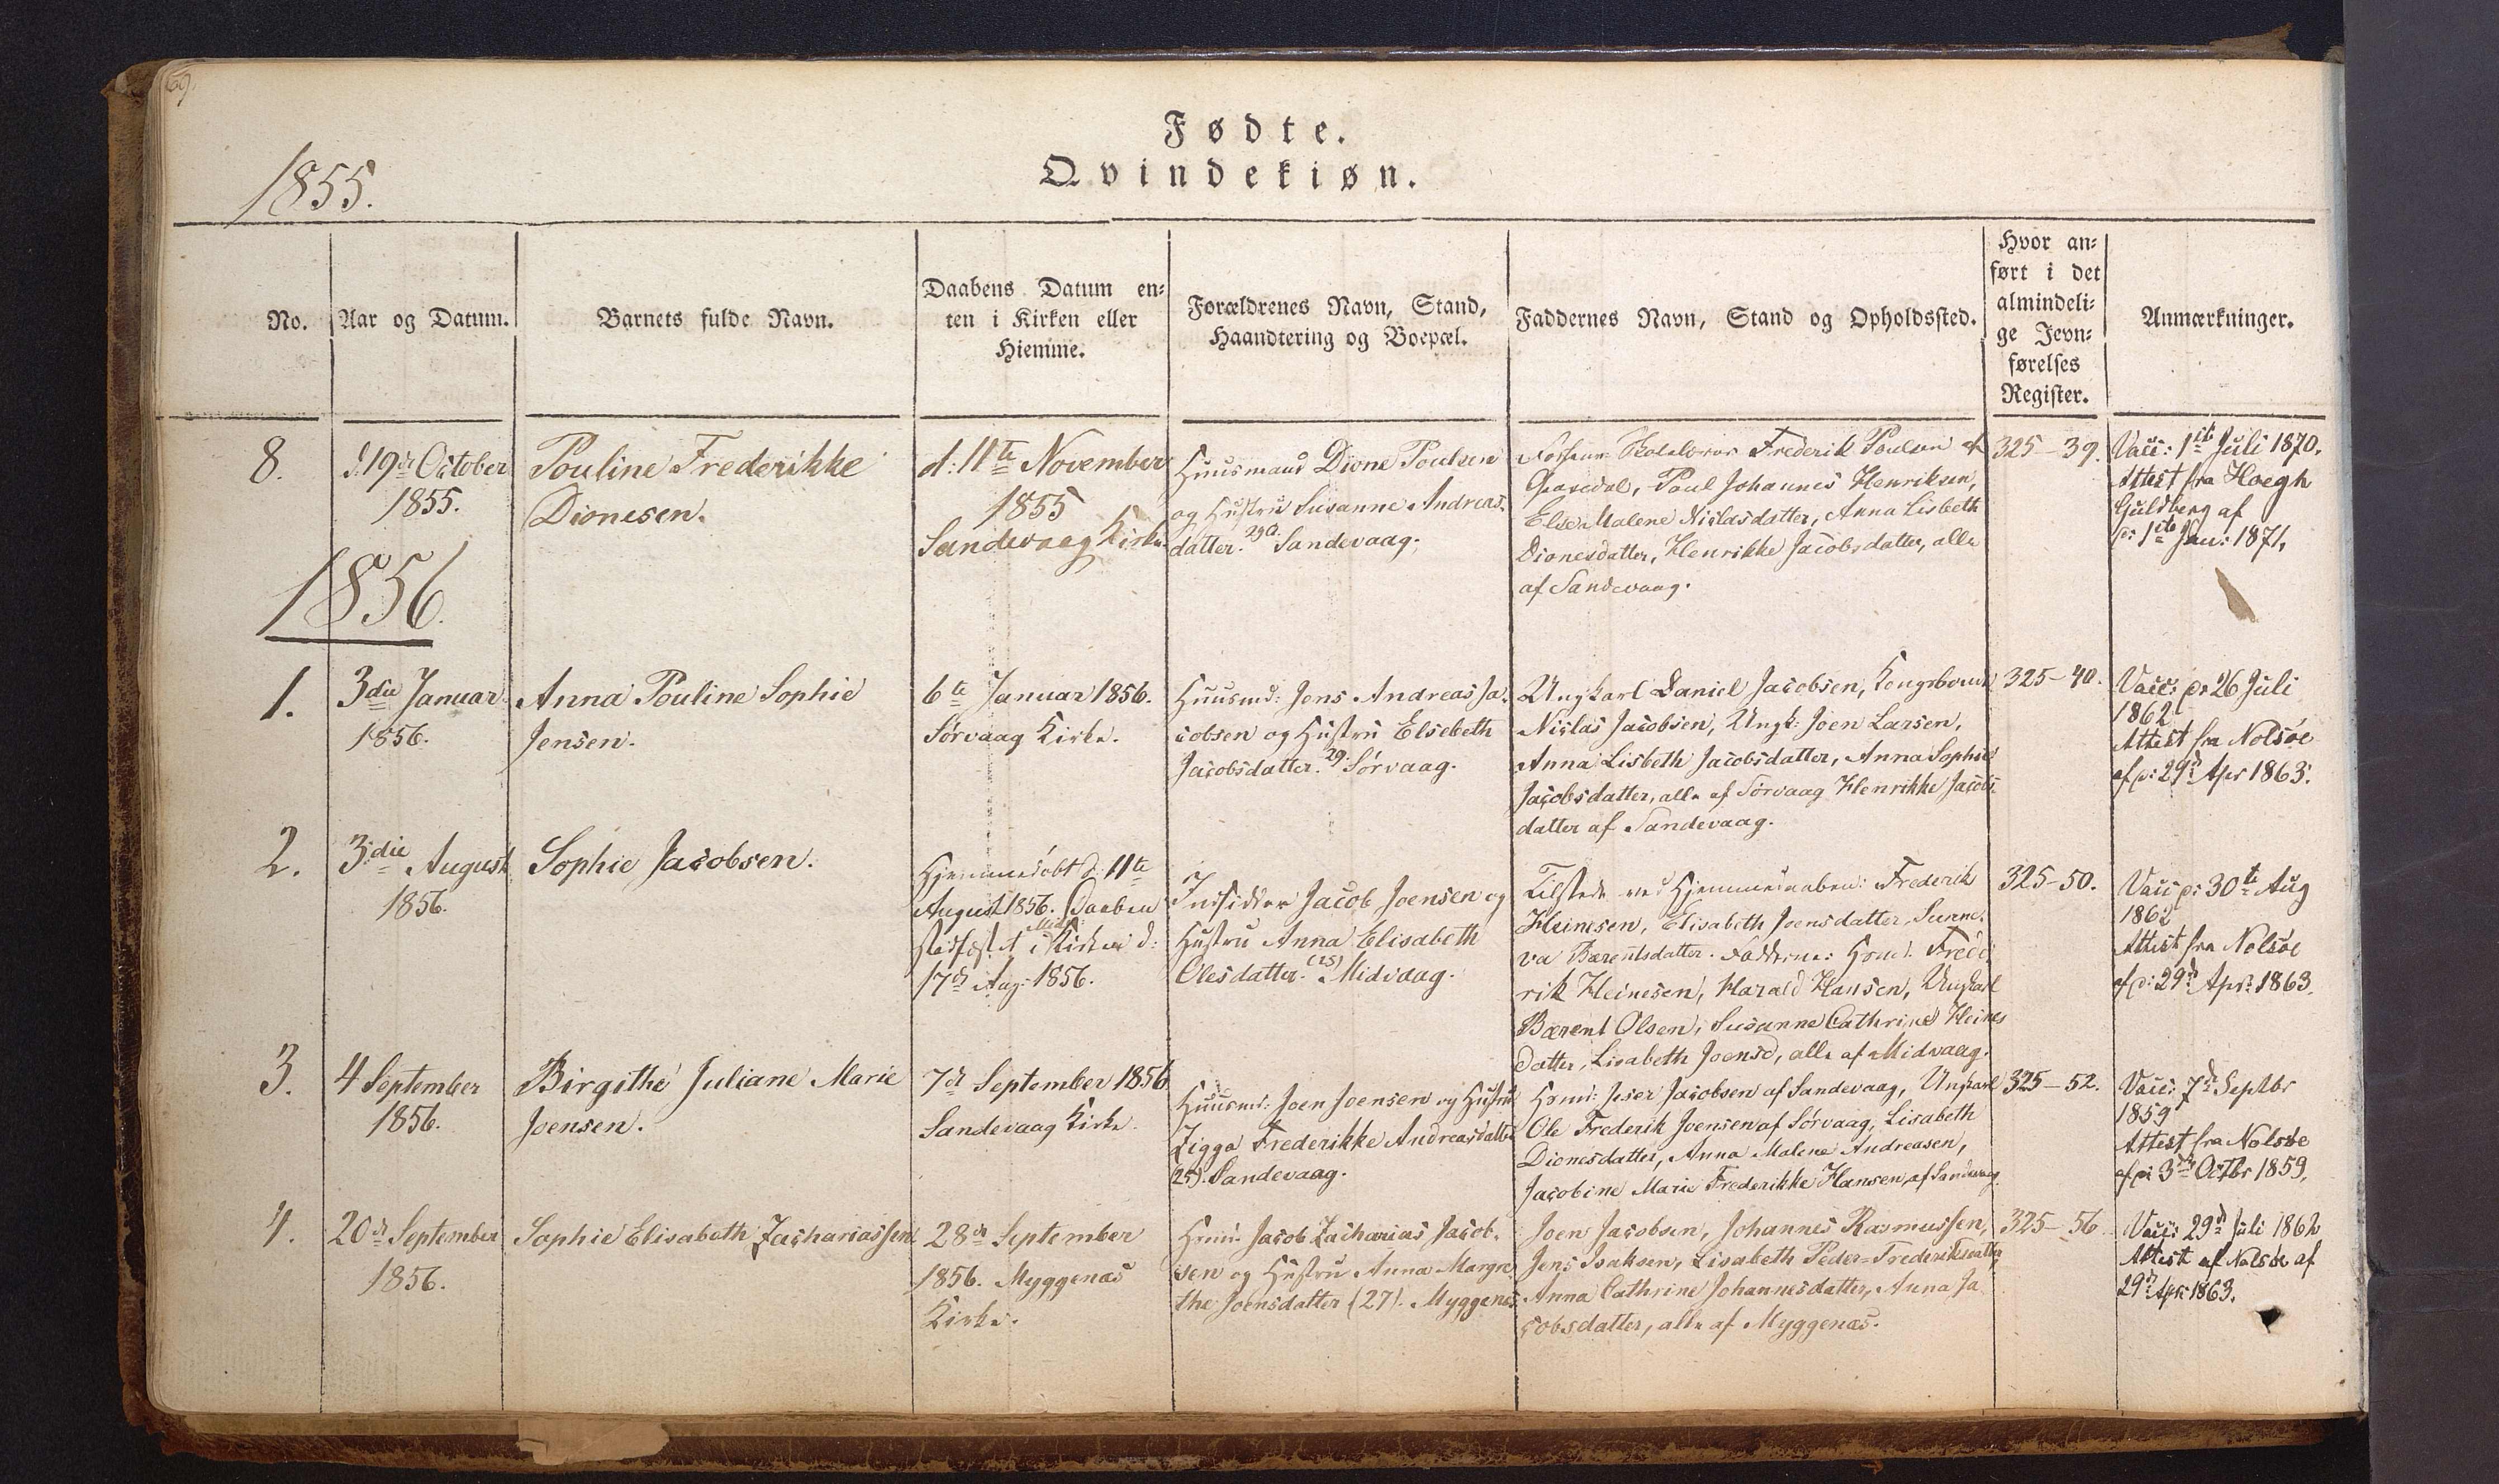 69.
Fødte.
Qvindekiøn.
1855.
No.
Aar og Datum.
Barnets fulde Navn.
Daabens Datum en-
ten i Kirken eller
Hiemme.
Forældrenes Navn, Stand,
Haandtering og Boepæl.
Faddernes Navn, Stand og Opholdssted.
Hvor an-
ført i det
almindeli-
ge Jevn-
førelses
Register.
Anmærkninger.
8.
d: 19de October
1855.
Pouline Frederikke
Dionesen.
d: 11te November
1855
Sandevaag Kirke.
Huusmand Dione Poulsen
og Hustru Susanne Andreas-
datter. 29 a. Sandevaag.
Frederik Poulsen af
Poul Johannes Henriksen,
Else Malene Niclasdatter, Anna Lisbeth
Dionesdatter, Henrikke Jacobsdatter, alle
af Sandevaag.
325-39.
Vacc: 1ste Juli 1870.
Attest fra Hoegh
Guldberg af
1ste Jan: 1871.
1856.
1.
3die Januar
1856.
Anna Pouline Sophie
Jensen.
6te Januar 1856.
Sørvaag Kirke.
Huusmd: Jens Andreas Ja-
cobsen og Hustru Elsebeth
Jacobsdatter. 29. Sørvaag.
Ungkarl Daniel Jacobsen, Kongsbonde
Niclas Jacobsen, Ungk: Joen Larsen,
Anna Lisbeth Jacobsdatter, Anna Sophie
Jacobsdatter, alle af Sørvaag Henrikke Jacobs-
datter af Sandevaag.
325-40.
Vacc: d: 26 Juli
1862
Attest fra Nolsøe
af d: 29d Apr 1863.
2.
3die August
1856.
Sophie Jacobsen.
Hjemmedøbt d: 11te
August 1856. Daaben
stadfæstet i Midv: Kirke d:
17de Aug: 1856.
Indsidder Jacob Joensen og
Hustru Anna Elisabeth
Olesdatter. (25) Midvaag.
Tilstede ved Hjemmedaaben: Frederik
Heinesen, Elisabeth Joensdatter, Sunne-
va Bærentsdatter. Fadderne: Frede-
rik Heinesen, Harald Hansen, Ungkarl
Bærent Olsen, Susanne Cathrine Heines
datter, Lisabeth Joensd, alle af Midvaag.
325-50.
Vacc d: 30te Aug
1862
Attest fra Nolsøe
af d: 29d Apr: 1863.
3.
4 September
1856.
Birgithe Juliane Marie
Joensen.
7de September 1856
Sandevaag Kirke.
Huusmd: Joen Joensen og Hustru
Zigga Frederikke Andreasdatter
25). Sandevaag.
Jacobsen af Sandevaag, Ungkarl
Ole Frederik Joensen af Sørvaag, Lisabeth
Dionesdatter, Anna Malene Andreasen,
Jacobine Marie Frederikke Hansen, af Sandevaag.
325-52.
Vacc: 7d Septbr
1859
Attest fra Nolsøe
af d: 3d Octbr 1859.
4.
20de September
1856.
Sophie Elisabeth Zachariassen
28de September
1856. Myggenæs
Kirke.
Jacob Zacharias Jacob-
sen og Hustru Anna Margre-
the Joensdatter (27). Myggenæs.
Joen Jacobsen, Johannes Rasmussen,
Jens Isaksen, Lisabeth Peder-Frederiksdatter,
Anna Cathrine Johannesdatter, Anna Ja-
cobsdatter, alle af Myggenæs.
325-56
Vacc: 29d Juli 1862
Attest af Nolsøe af
29d Apr: 1863.